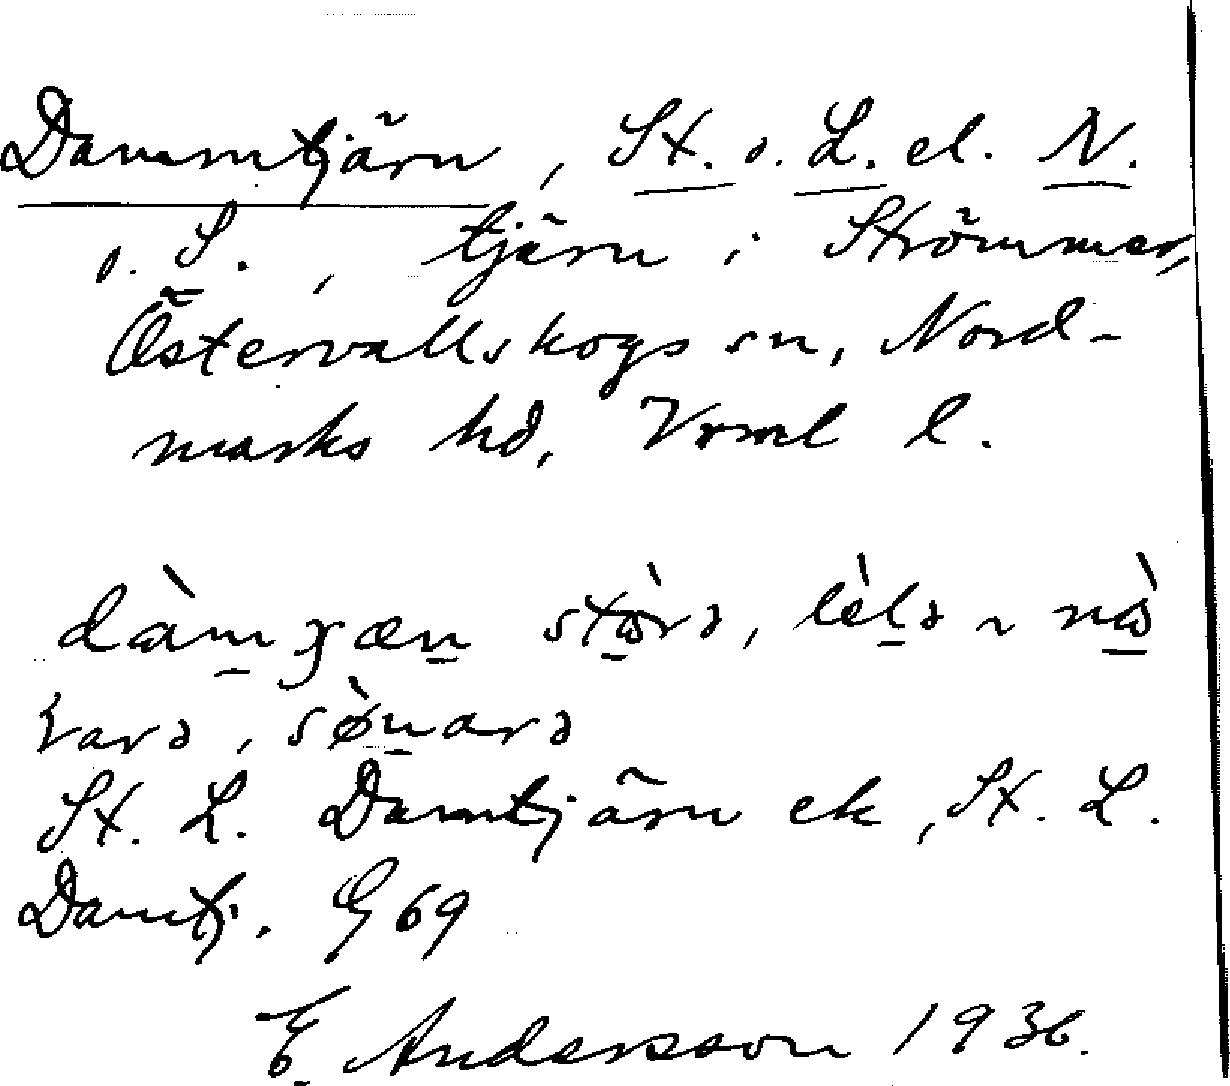 Dammtjärn, St. o. L. el. N.
o. S., tjärn i Strömmer,
Östervallskogs sn, Nord-
marks hd, Vrml l.
dàmɟæn stòrə, lèlə ~ nò
rarə, sønarə
St. L. Damtjärn ek, St. L.
Damtj. G 69
E. Andersson 1936.